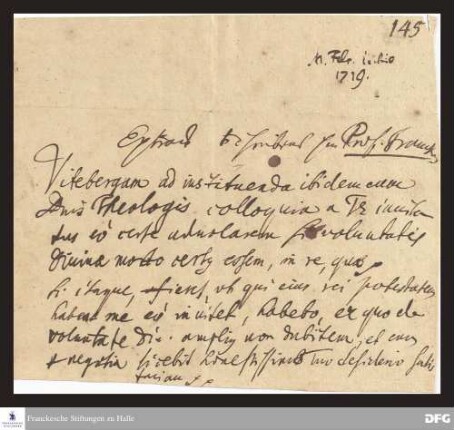 145
M. Febr. initio
1719.
Extract Schreibens Hn Prof. Franck
Vitebergam ad instituenda ibidem cum
Dnis Theologis colloquia a Te invita
tus eo certe advolarem si voluntatis
divinae modo certus essem, in re, qua
Si itaque, fieret, ut qui eius rei potestatem
habent me eo invitet, habebo, ex quo de
voluntate div. amplius non dubitem, et cum
negotia desiderio satis
faciam
Franckesche Stiftungen zu Halle
DFG